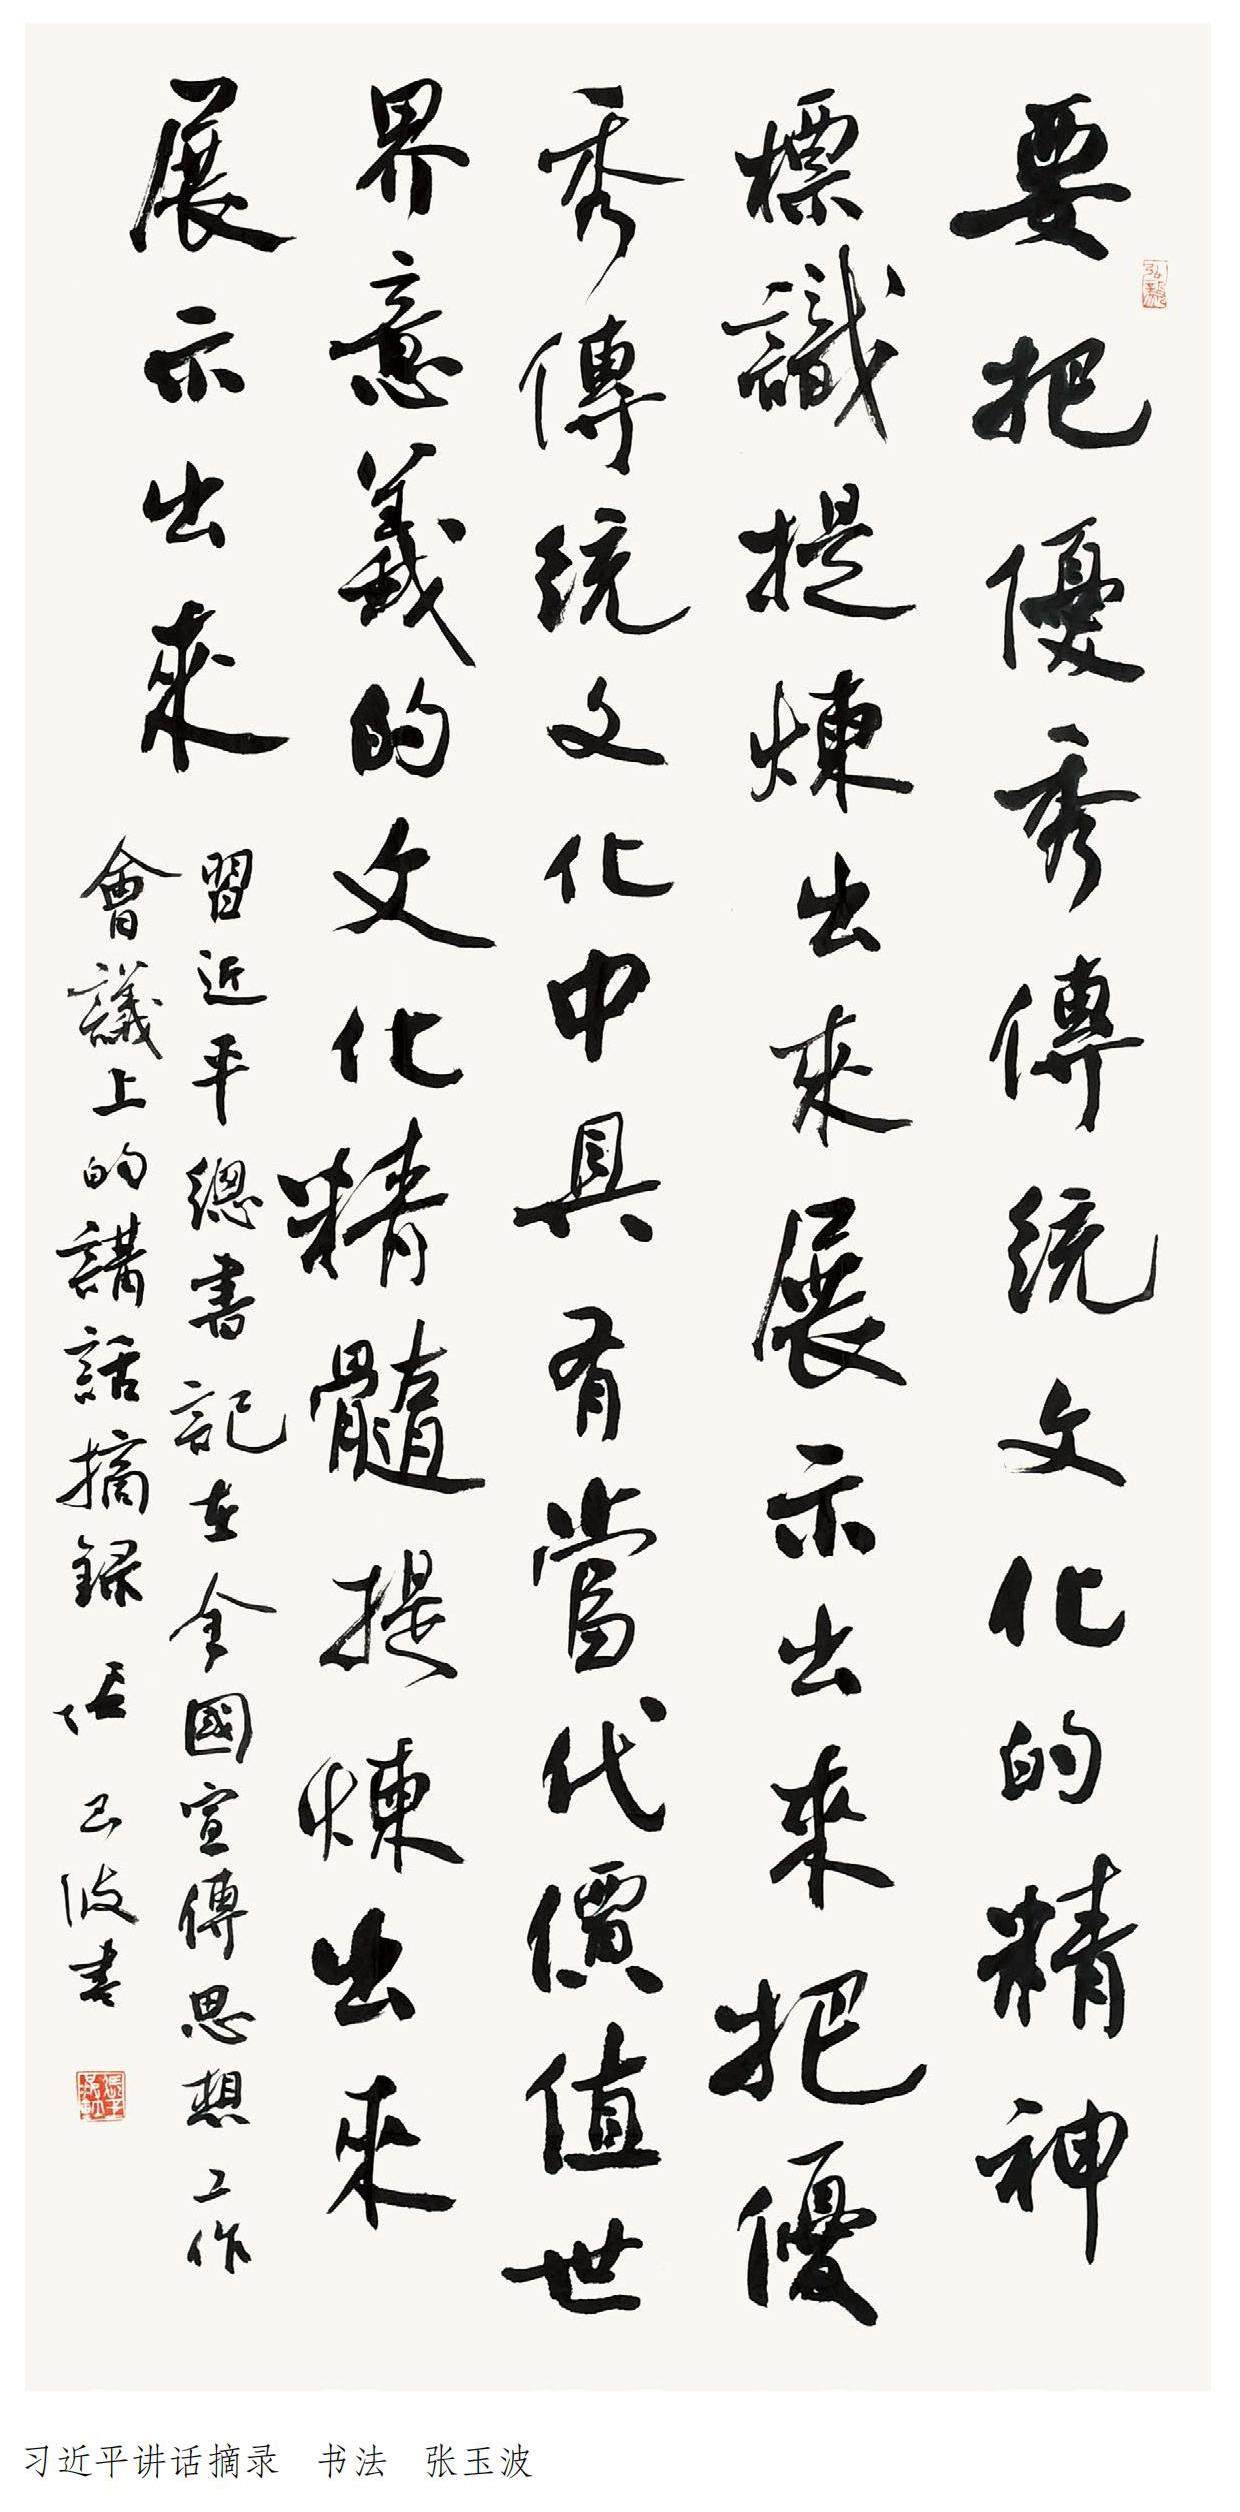 要把優秀傳統文化的精神
標識提煉出來展示出來把優
秀傳統文化中具有當代價值世
界意義的文化精髓提煉出來
展示出來
習近平總書記在全國宣傳思想工作
會議上的講話摘録 張玉波書
习近平讲话摘录 书法 张玉波